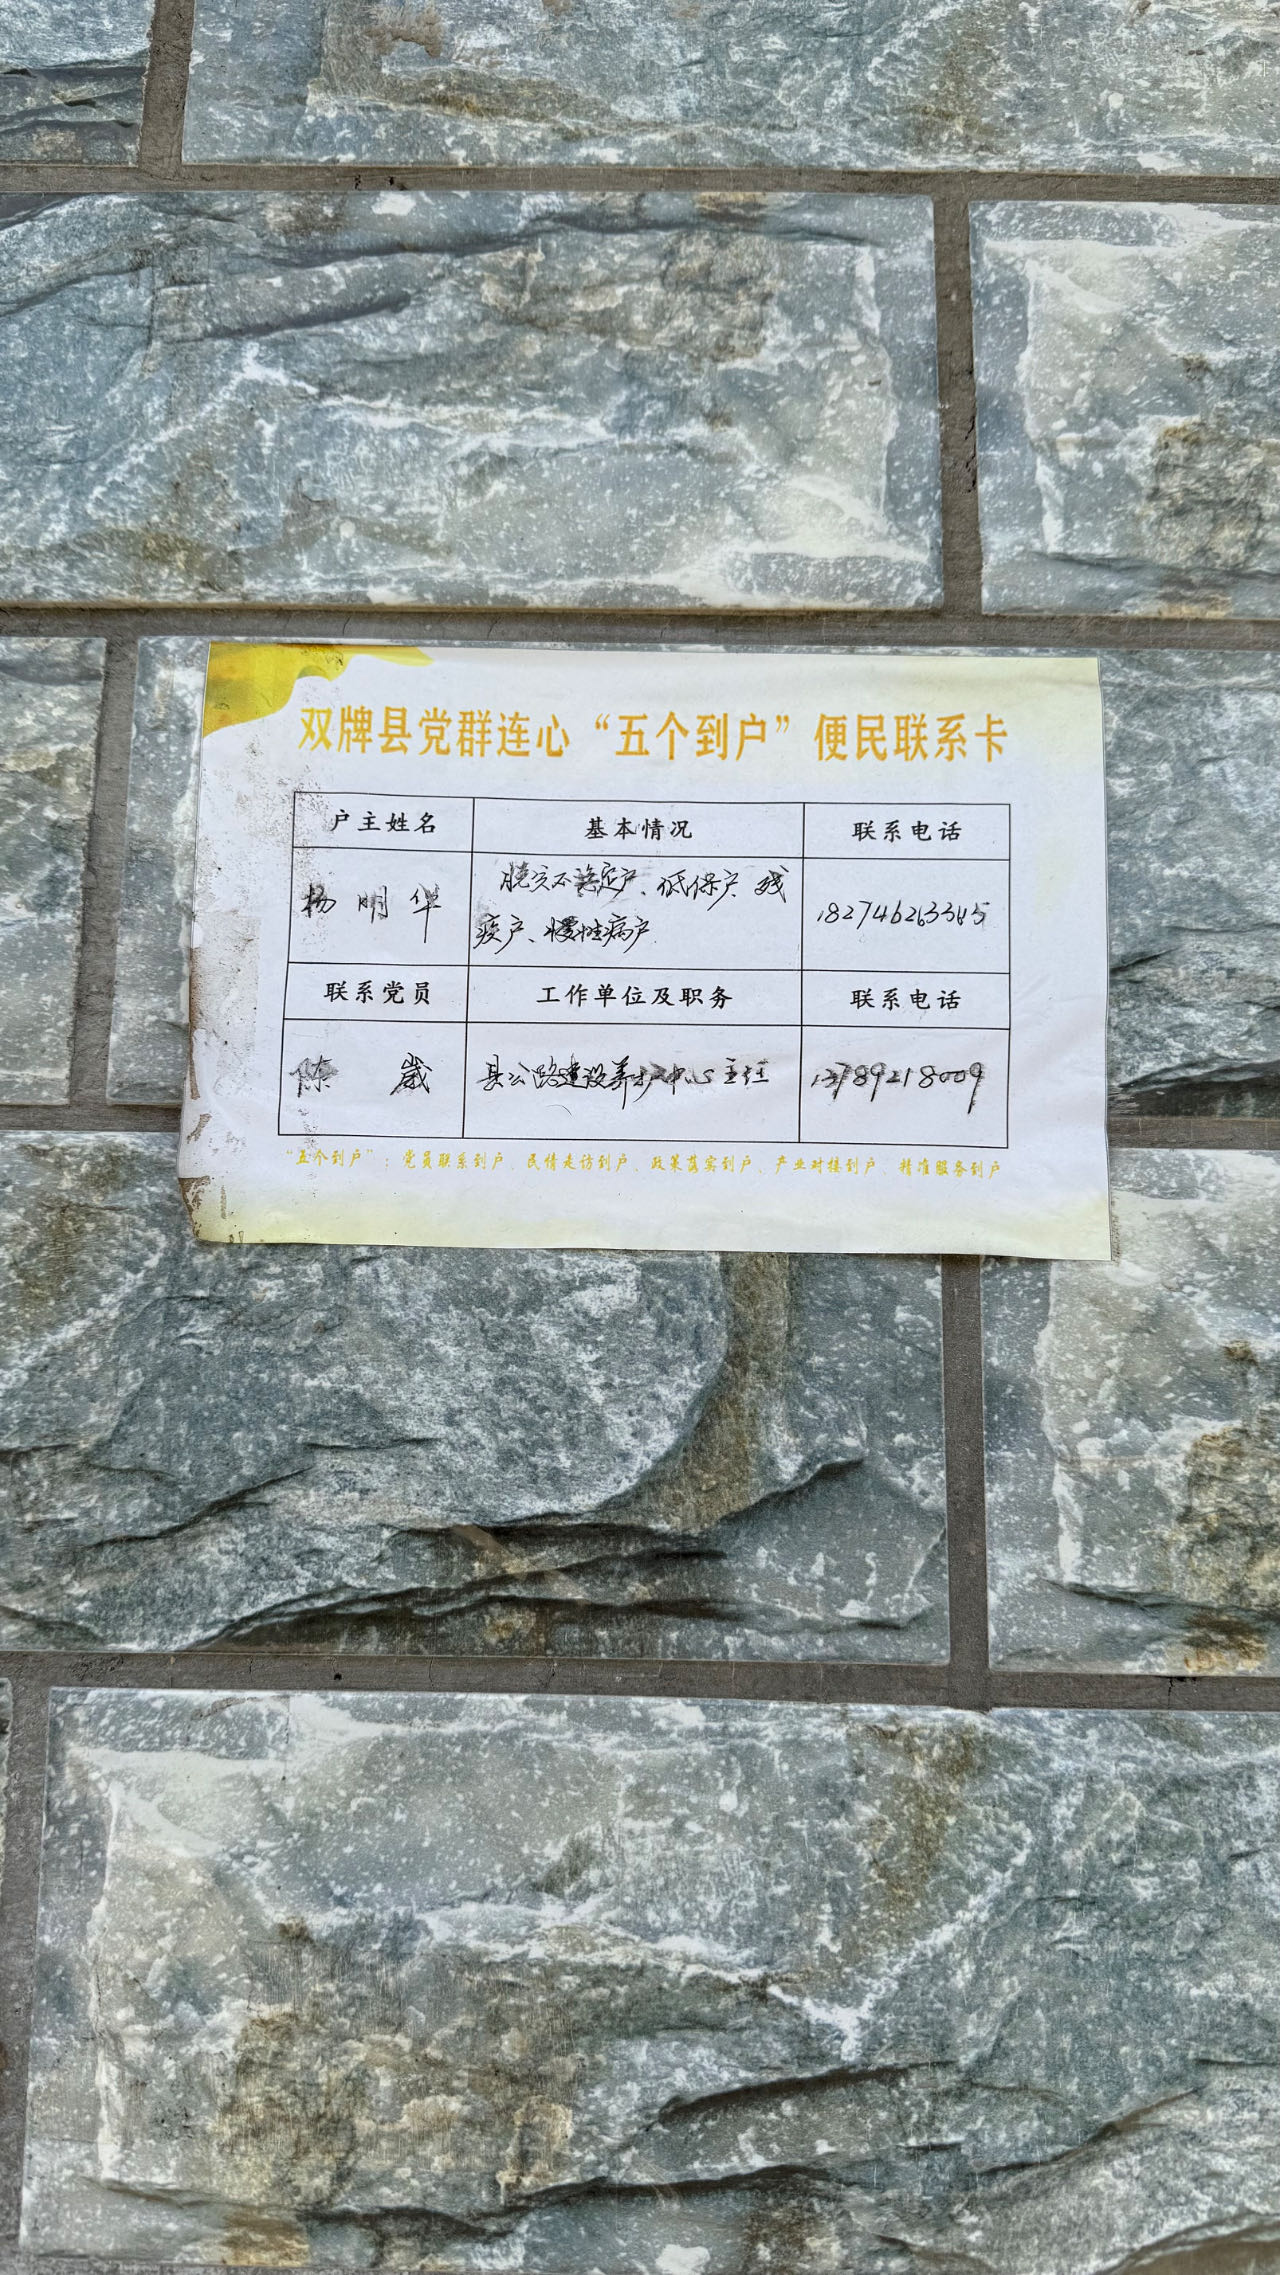 双牌县党群连心“五个到户”便民联系卡
户主姓名 基本情况 联系电话
杨明华 脱贫不稳定户、低保户、残
疾户、慢性病户
联系党员 工作单位及职务 联系电话
陈 崴 县公路建设养护中心主任 13789218009
“五个到户”：党员联系到户、民情走访到户、政策落实到户、产业对接到户、精准服务到户